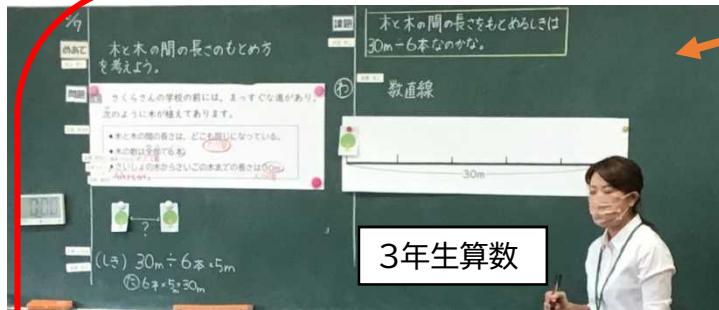 めあて
木と木の間の長さのもとめ方
を考えよう。
問題
さくらさんの学校の前には、まっすぐな道があり、
次のように木が植えてあります。
●木と木の間の長さは、どこも同じになっている。
●木の数は全部で6本。
●さいしょの木からさいごの木までの長さは30m。
?
(しき) 30m÷6本=5m
6本×5m=30m
課題
木と木の間の長さをもとめるしきは
30m÷6本なのかな。
わ
数直線
30m
3年生算数